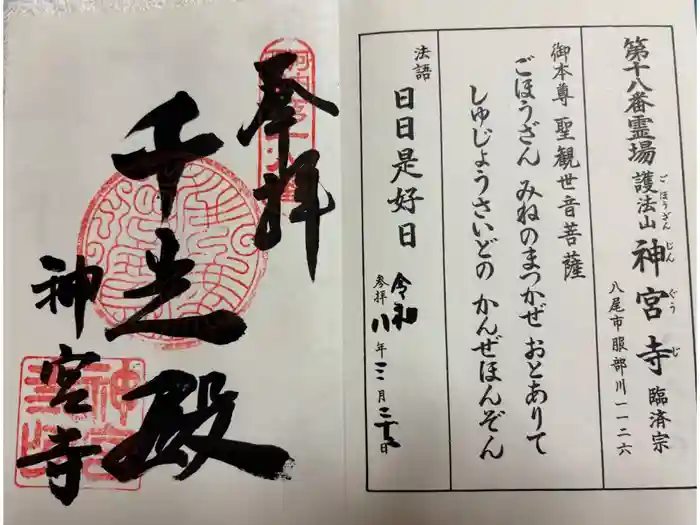 第十八番霊場 護法山 神宮寺 臨済宗
ごほうざん じんぐうじ
八尾市服部川一一二六
御本尊 聖観世音菩薩
ごほうざん みねのまつかぜ おとありて
しゅじょうさいどの かんぜほんぞん
法語 日日是好日
参拝 令和八年三月二十 日
奉拝
千光殿
神宮寺